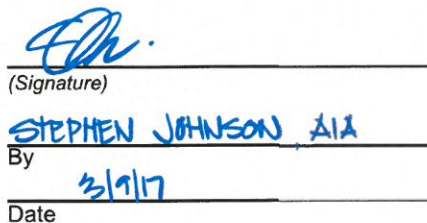 (Signature)
STEPHEN JOHNSON, AIA
By
3/9/17
Date